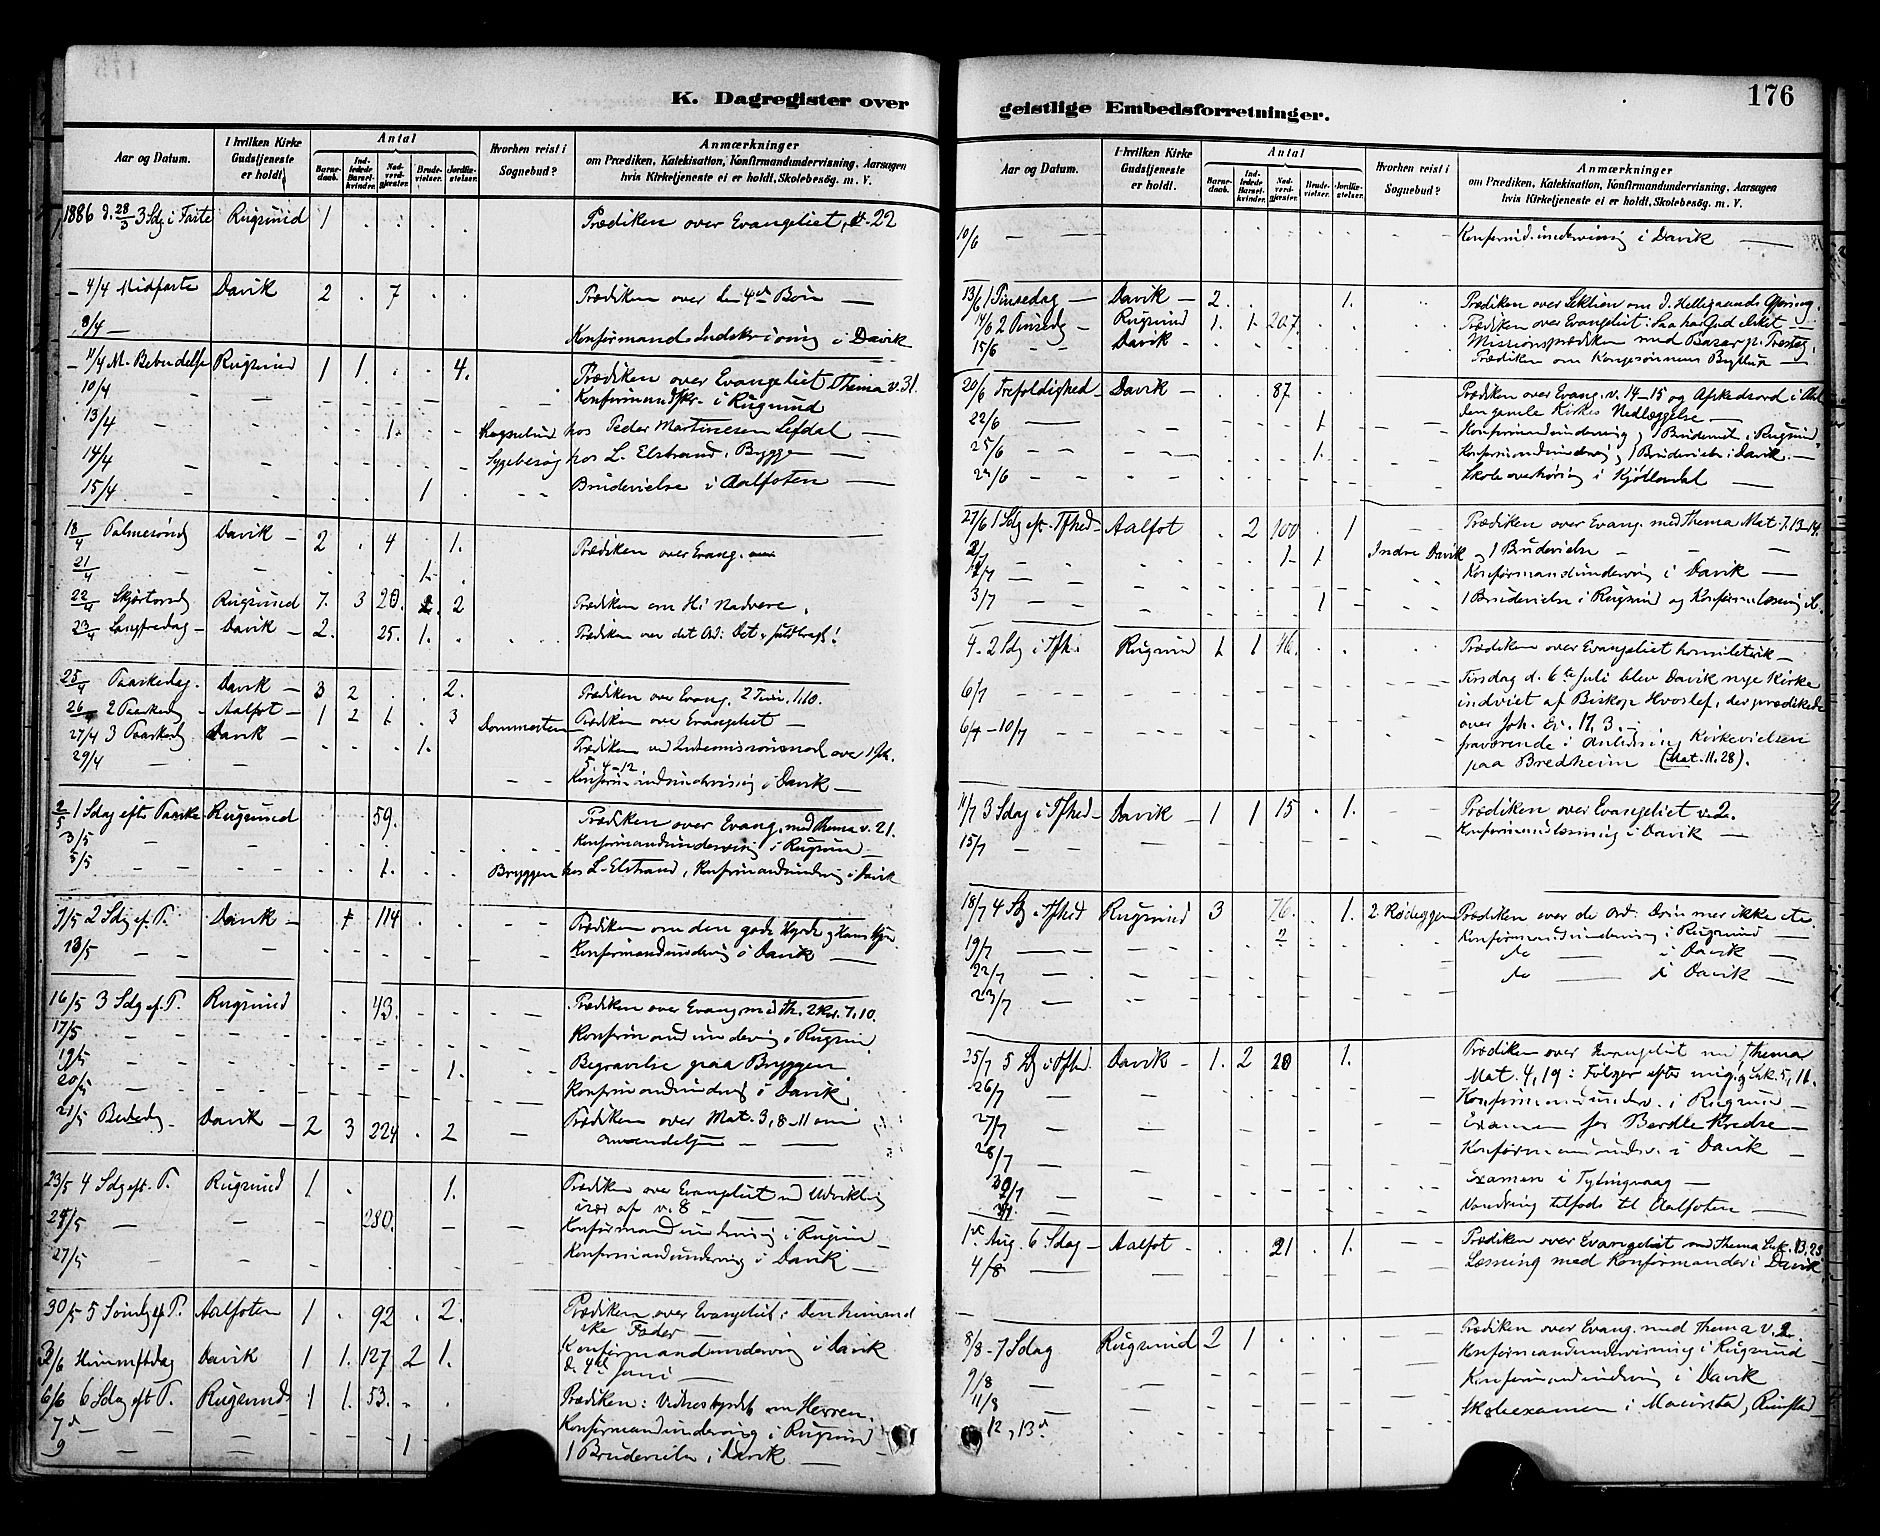 K. Dagregister over
Aar og Datum.
I hvilken Kirke Gudstjeneste er holdt.
Antal
Barnedaab.
Indledede Barselkvinder.
Nadverdgjester.
Brudevielser.
Jordfæstelser.
Hvorhen reist i Sognebud?
Anmærkninger
om Prædiken, Katekisation, Konfirmandundervisning, Aarsagen
hvis Kirketjeneste ei er holdt, Skolebesøg. m. V.
1886 d. 28/3 3 Sdg i Faste Rugsund 1 Prædiken over Evangeliet, v. 22
4/4 Midfaste Davik 2 7 Prædiken over den 4de Bøn
8/4 Konfirmand Indskrivning i Davik
4/4 M. Bebudelse Rugsund 1 1. 4. Prædiken over Evangeliet Thema v. 31.
10/4 Konfirmandskr. i Rugsund
13/4 1. hos Peder Martinesen Lefdal
14/4 Sygebesøg hos L. Elstrand, Bryggen
15/4 1 Brudevielse i Aalfoten
18/4 Palmesønd Davik 2 4 1. Prædiken over Evang.
21/4 1.
22/4 Skjærtorsd Rugsund 7. 3 20. 2. 2 Prædiken om H. Nadvere.
23/4 Langfredag Davik 2. 25. 1. Prædiken over det Ord: Det er fuldbragt!
25/4 Paaskedag. Davik 3 2 2. Prædiken over Evang. 2 Tim. 1.10.
26 2 Paaskedg Aalfot 1 2 1. 3 Prædiken over Evangeliet
27/4 3 Paaskedg Davik 1.
5. 4-12
29/4 Konfirmandundervisning i Davik
2/5 1 Sdag eft. Paaske Rugsund 59. Prædiken over Evang. med Thema v. 21.
3/5 Konfirmandundervisng i Rugsun
5/5 1. Bryggen hos L. Elstrand, Konfirmandundervng i Davik
9/5 2 Sdg ef. P. Davik 114 Prædiken om den gode Hyrde og Hans Hjor
13/5 Konfirmandundervng i Davik
16/5 3 Sdg ef. P. Rugsund 43. Prædiken over Evang med Th. 2 Kor. 7, 10.
17/5 Konfirmandundervng i Rugsun.
19/5 1. Begravelse paa Bryggen
20/5 Konfirmandunderv i Davik
21/5 Bededg Davik 2 3 224 2 Prædiken over Mat. 3, 8-11 om
omvendelsen
23/5 4 Sdg eft. P. Rugsund 1 1. Prædiken over Evangeliet med Udvikling
især af v. 8
24/5 280. Konfirmandundervisng i Rugsun
27/5 Konfirmandundervng i Davik
30/5 5 Søndg ef P. Aalfoten 1 92 2. Prædiken over Evangeliet: Den himmel
ske Fader
3/6 Himmelftsdag Davik 1 1. 127 2 1. Konfirmandundervng i Davik
d. 4de Juni
6/6 6 Sdag eft P. Rugsund 1 1. 53. Prædiken: Vidnesbyrdet om Herren.
7d Konfirmandundervng i Rugsund
9 1 1 Brudevielse i Davik
176
geistlige Embedsforretninger.
Aar og Datum.
I hvilken Kirke Gudstjeneste er holdt.
Antal
Barnedaab.
Indledede Barselkvinder.
Nadverdgjester.
Brudevielser.
Jordfæstelser.
Hvorhen reist i Sognebud?
Anmærkninger
om Prædiken, Katekisation, Konfirmandundervisning, Aarsagen
hvis Kirketjeneste ei er holdt, Skolebesøg. m. V.
10/6 Konfirmd.undervisng i Davik
13/6 1 Pinsedag Davik 2. 1. Prædiken over Lektien om d. Helligaands
14/6 2 Pinsedg Rugsund 1. 1. 207. Prædiken over Evangeliet: Saa har Gud elsket
15/6 Davik Missionsprædiken med Bazar
Prædiken om Kongesønnens Bryllup
20/6 Trefoldighed Davik 87 Prædiken over Evang. v. 14-15 og Afskedsord i Anl
den gamle Kirkes Nedlæggelse
22/6 1 Konfirmandundervng, 1 Brudevielse i Rugsund.
25/6 1. Konfirmandundervng, 1 Brudevielse i Davik.
Skoleoverhøring i
27/6 1 Sdg ef. Tfhed Aalfot 2 100 1 Prædiken over Evang. med Thema Mat. 7. 13-14.
2/7 1 1 Indre Davik og 1 Brudevielse
Konfirmandundervng i Davik
3/7 1 1 Brudevielse i Rugsund og Konfirm.læsning
4. 2 Sdg i Tfh. Rugsund 1 1 46. Prædiken over Evangeliet homiletisk
6/7 Tirsdag d. 6te Juli blev Davik nye Kirke
indviet af Biskop Hvoslef, der prædikede
over Joh. Ev. 17, 3.
6/7-10/7 fraværende i Anledning Kirkevielsen
paa Bredheim (Mat. 11. 28).
11/7 3 Sdag i Tfhed Davik 1 1 15 1. Prædiken over Evangeliet v. 2.
15/7 Konfirmandlæsning i Davik
18/7 4 Sdg i Tfhed Rugsund 3 76. 1. 2. Rødeggen Prædiken over de Ord: Døm mer ikke etc.
19/7 2 Konfirmandundervng i Rugsund
22/7 do i Davik
23/7 do i Davik
25/7 5 Sdg i Tfhd. Davik 1. 2 20 1. Prædiken over Evangeliet med Thema
Mat. 4, 19: Følger efter mig. og Luk. 5, 11.
26/7 Konfirmandunderv. i Rugsund
27/7 Examen for Berdle Kredse
28/7 Konfirmandundv. i Davik
30/7 Examen i Tytingvaag
31. Vandring tilfods til Aalfoten
1ste Aug. 6 Sdag Aalfot 21 1. Prædiken over Evangeliet med Thema Luk. 13, 23
4/8 Læsning med Konfirmander i Davik
8/8 7 Sdag Rugsund 2 1 Prædiken over Evang. med Thema v. 2.
Konfirmandundervisning i Rugsund
9/8 Konfirmandundervng i Davik
11/8 Skoleexamen i Maurstad, Rimstad
12, 13d